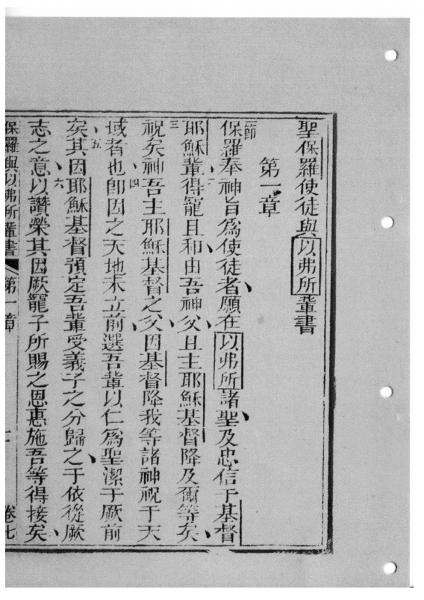 聖保羅使徒與以弗所輩書
第一章
節一保羅奉神旨為使徒者願在以弗所諸聖及忠信于基督
耶穌輩得寵且和由吾神父且主耶穌基督降及爾等矣
三祝矣神吾主耶穌基督之父因基督降我等諸神祝于天
域者也四即因之天地未立前選吾輩以仁為聖潔于厥前
矣五其因耶穌基督預定吾輩受義子之分歸之于依從厥
志之意六以讚榮其因厥寵子所賜之恩惠施吾等得接矣
保羅與以弗所輩書 第一章 卷七